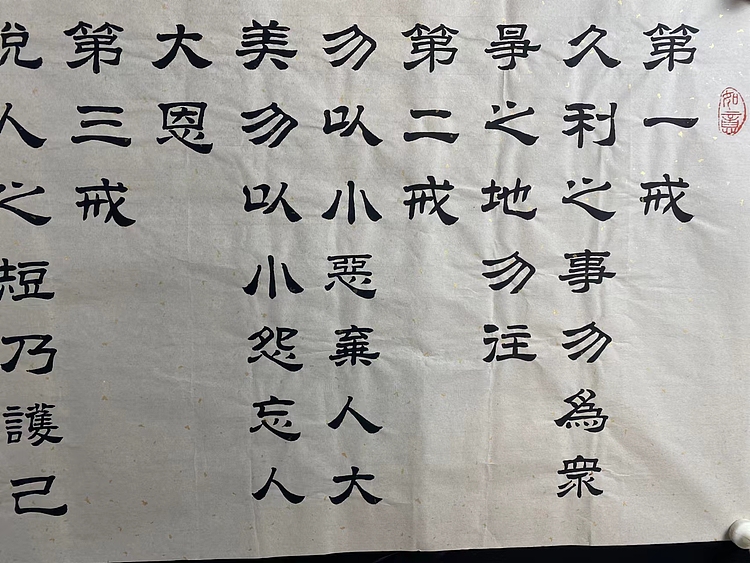 如意
第一戒
久利之事勿為眾
爭之地勿往
第二戒
勿以小惡棄人大
美勿以小怨忘人
大恩
第三戒
說人之短乃護己